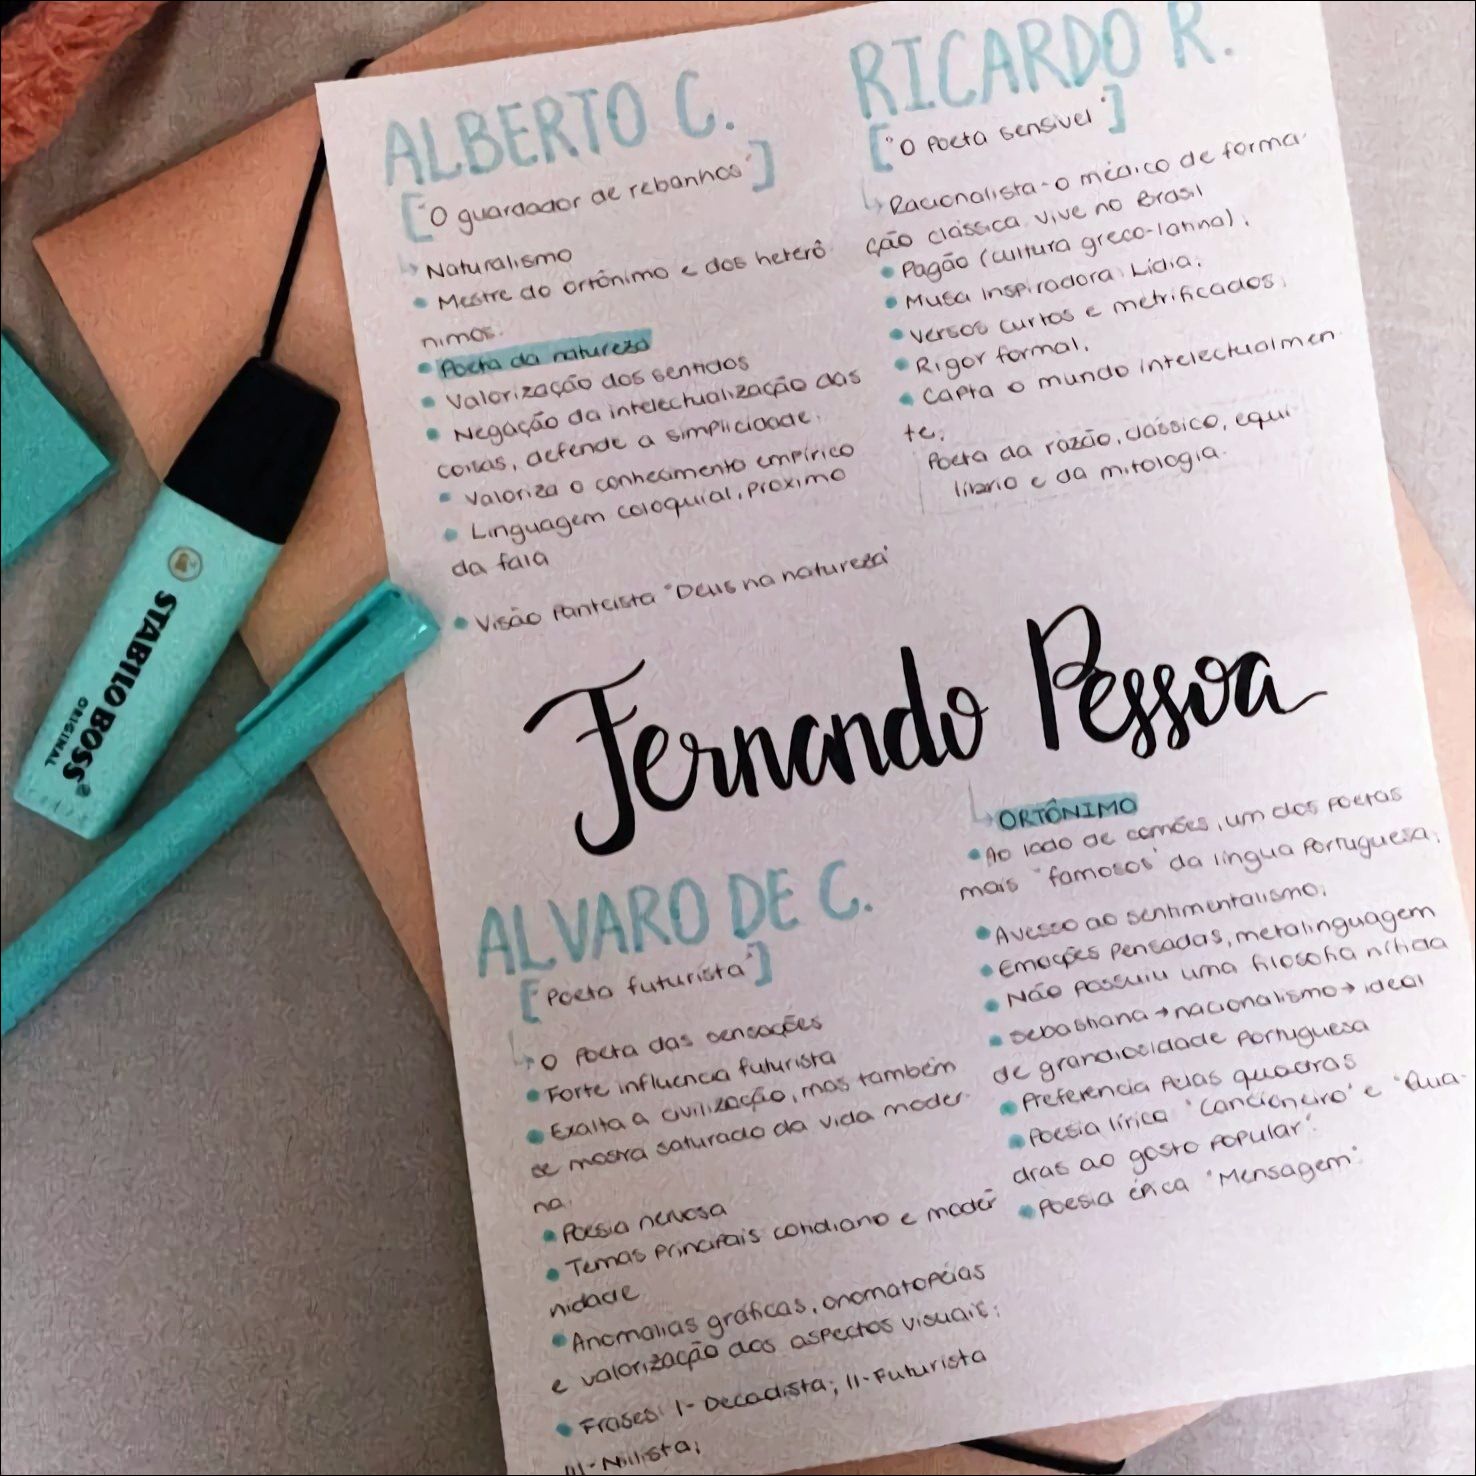 ALBERTO C.
["O guardador de rebanhos"]
Naturalismo
• Mestre do ortônimo e dos heterô
nimos.
• Poeta da natureza
• Valorização dos sentidos
• Negação da intelectualização das
coisas, defende a simplicidade.
• Valoriza o conhecimento empírico
• Linguagem coloquial, próximo
da fala
• Visão Panteista "Deus na natureza"
RICARDO R.
["O Poeta sensível"]
Racionalista - o médico de forma-
ção clássica, vive no Brasil
• Pagão (cultura greco-latina);
• Musa inspiradora: Lídia;
• Versos curtos e metrificados;
• Rigor formal,
• Capta o mundo intelectualmen
te;
Poeta da razão, clássico, equi-
líbrio e da mitologia.
Fernando Pessoa
ORTÔNIMO
• Ao lado de camões, um dos Poetas
mais "famosos" da língua Portuguesa;
• Avesso ao sentimentalismo;
• Emoções Pensadas, metalinguagem
• Não Possuiu uma filosofia nítida
• Sebastiana → nacionalismo → ideal
de grandiosidade Portuguesa
• Preferencia Pelas quadras
• Poesia lírica "Cancioneiro" e "Qua-
dras ao gosto Popular".
• Poesia épica "Mensagem".
ALVARO DE C.
[Poeta futurista"]
O Poeta das sensações
• Forte influencia futurista
• Exalta a civilização, mas também
se mostra saturado da vida moder-
na.
• Poesia nervosa
• Temas Principais cotidiano e moder
nidade
• Anomalias gráficas, onomatopéias
e valorização dos aspectos visuais;
• Frases: I- Decadista; II-Futurista
III-Niilista;
STABILO BOSS®
ORIGINAL